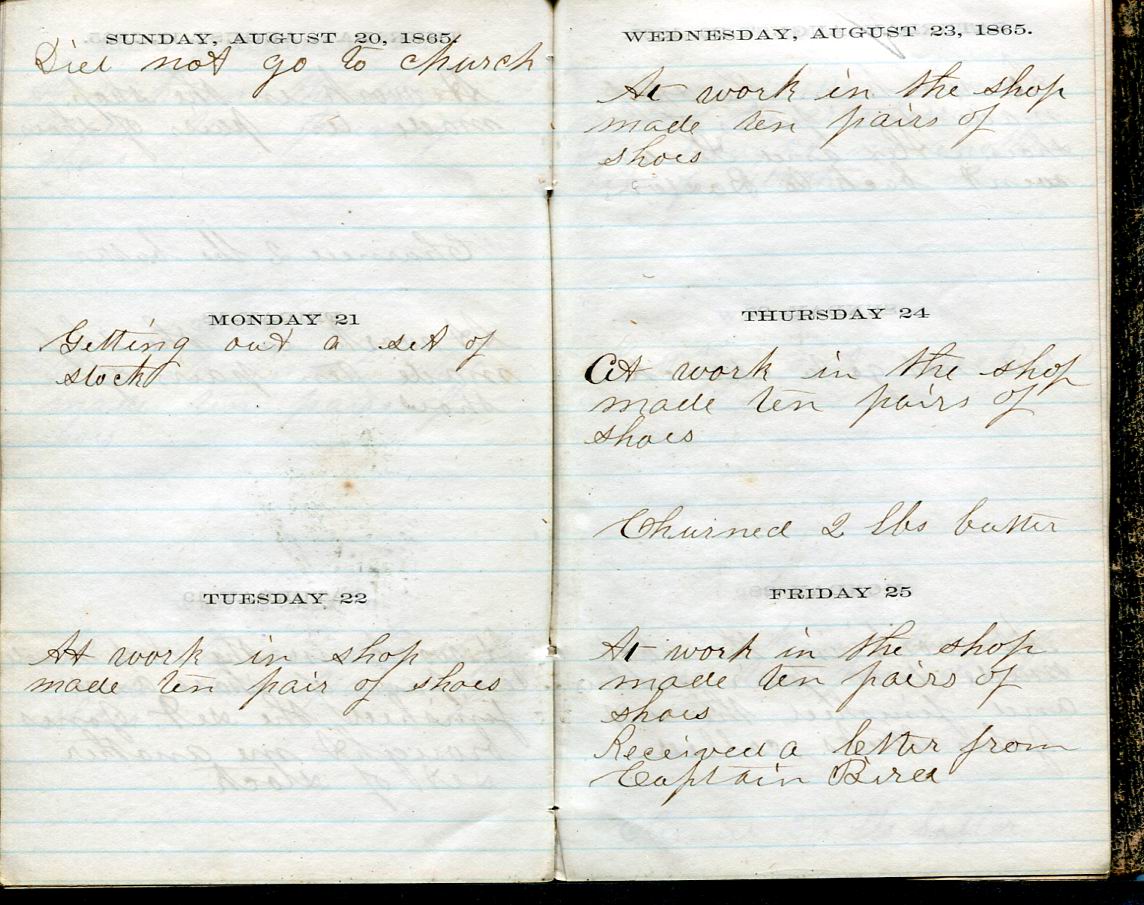 SUNDAY, AUGUST 20, 1865.
Did not go to church
MONDAY 21
Getting out a set of
stock
TUESDAY 22
At work in shop
made ten pair of shoes
WEDNESDAY, AUGUST 23, 1865.
At work in the shop
made ten pairs of
shoes
THURSDAY 24
At work in the shop
made ten pairs of
shoes
Churned 2 lbs butter
FRIDAY 25
At work in the shop
made ten pairs of
shoes
Received a letter from
Captain Bird